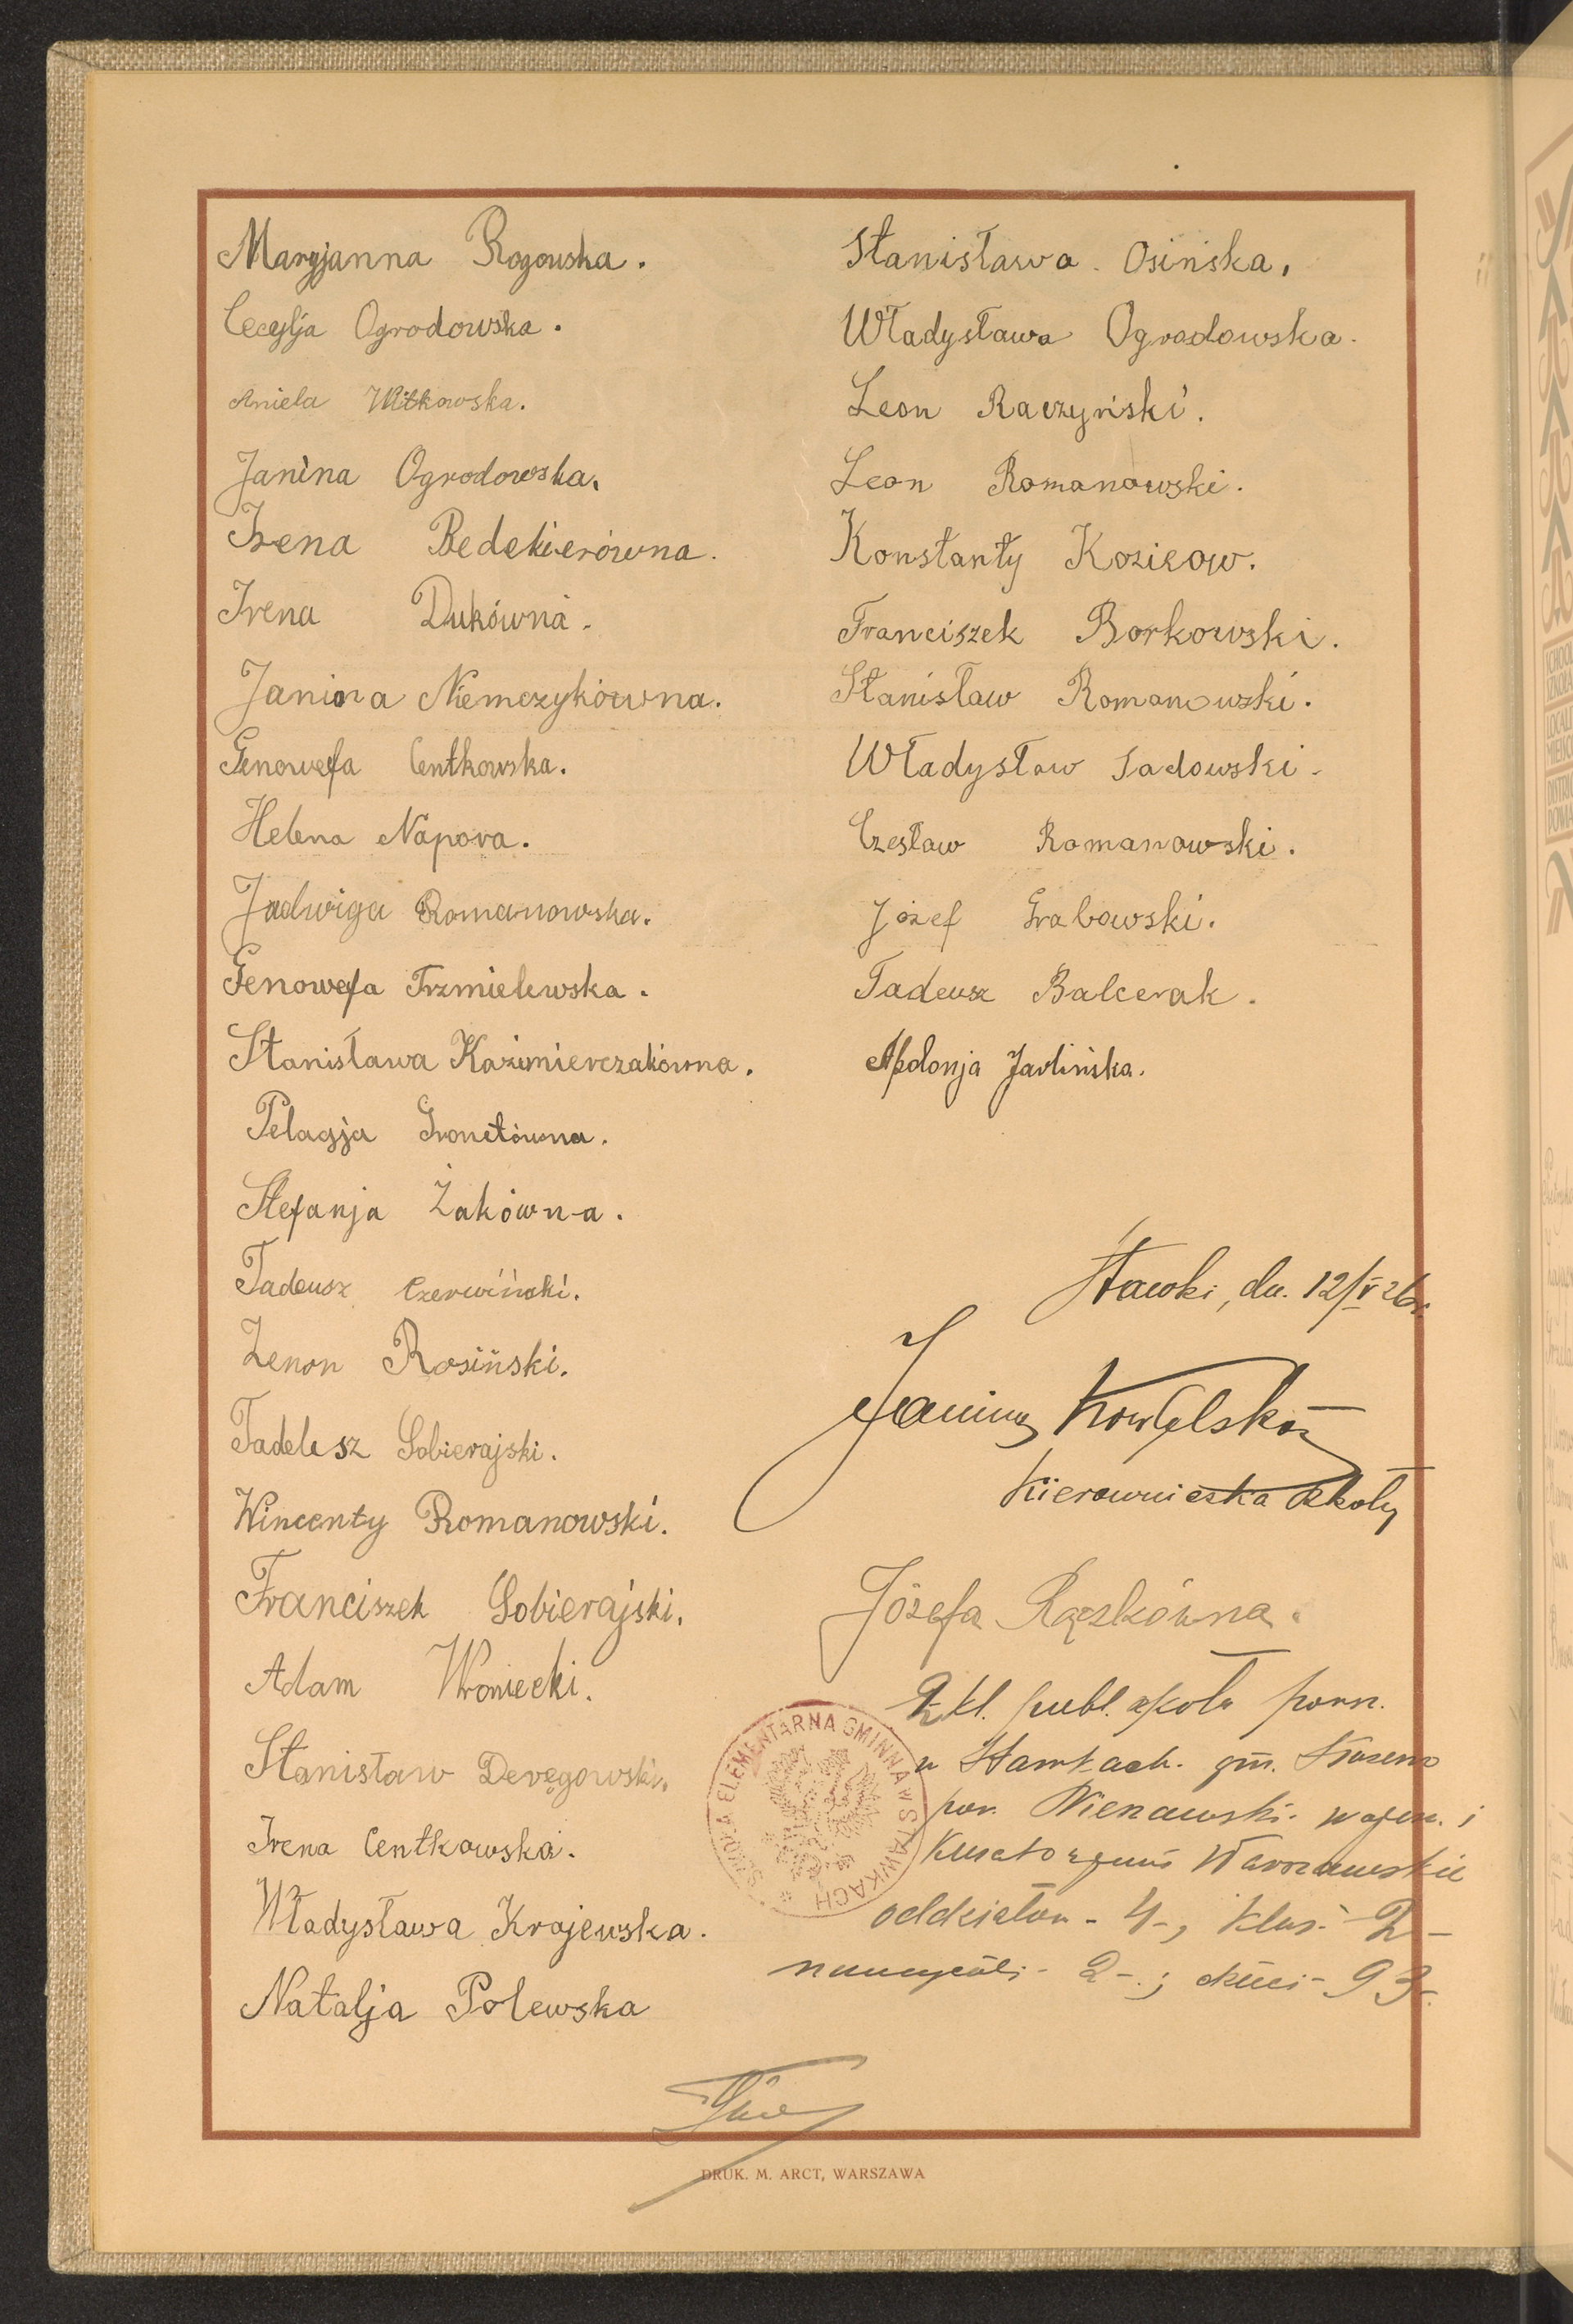 Maryjanna Rogowska.
Cecylja Ogrodowska.
Aniela Witkowska.
Janina Ogrodowska.
Irena Bedekierówna.
Irena Dukówna.
Janina Niemczykówna.
Genowefa Centkowska.
Helena Napora.
Jadwiga Romanowska.
Genowefa Trzmielewska.
Stanisława Kazimierczakówna.
Pelagja Gronetówna.
Stefanja Żakówna.
Tadeusz Czerwiński.
Zenon Rosiński.
Tadeusz Sobierajski.
Wincenty Romanowski.
Franciszek Sobierajski.
Adam Woniecki.
Stanisław Deręgowski.
Irena Centkowska.
Władysława Krajewska.
Natalja Polewska
Stanisława Osińska.
Władysława Ogrodowska.
Leon Raczyński.
Leon Romanowski.
Konstanty Kozieow.
Franciszek Borkowski.
Stanisław Romanowski.
Władysław Sadowski.
Czesław Romanowski.
Józef Grabowski.
Tadeusz Balcerak.
Apolonja Jarlińska.
Stawki, dn. 12/V 26r.
Janina Kowalska
Kierowniczka szkoły
Józefa Rączkówna.
2 kl. publ. szkoła pow.
w Stawkach. gm.
pow. Nieszawski. wojew. i
Kuratorjum Warszawskie
oddziałów - 4-, klas - 2-
nauczycieli - 2-; dzieci - 93-.
SZKOŁA ELEMENTARNA GMINNA w STAWKACH
DRUK. M. ARCT, WARSZAWA